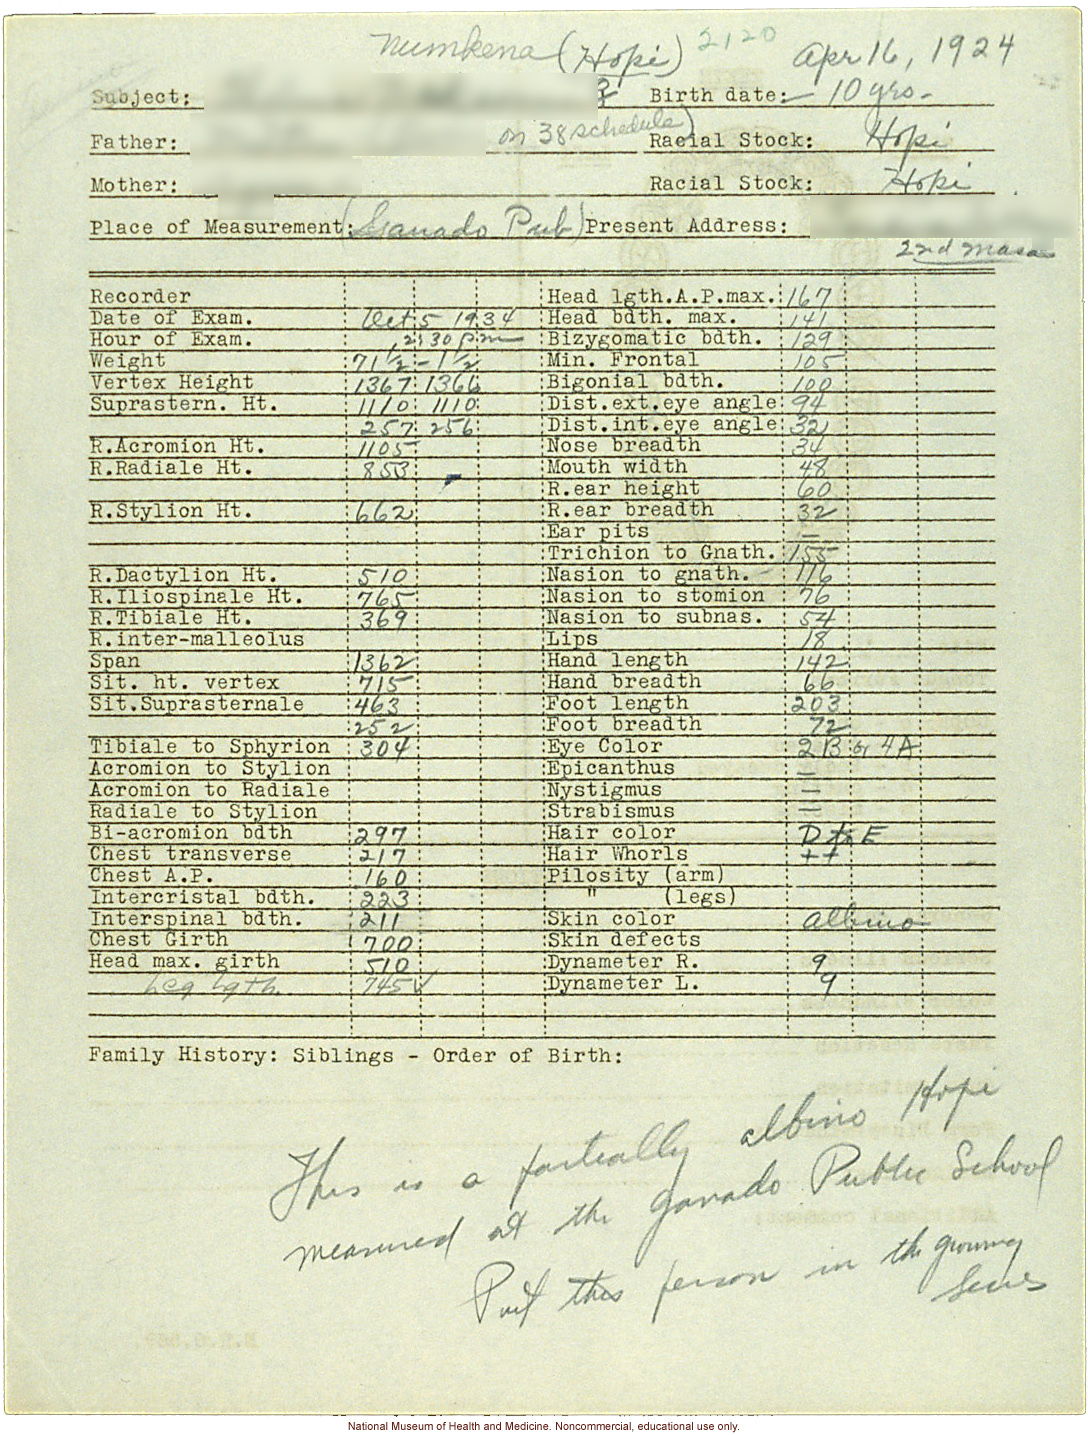 Numkena (Hopi) 2120 Apr 16, 1924
Subject: Birth date: 10 yrs.
Father: on 38 schedule) Racial Stock: Hopi
Mother: Racial Stock: Hopi
Place of Measurement: (Ganado Pub) Present Address:
2nd Masa
Recorder
Date of Exam. Oct 5 1934
Hour of Exam. 2:30 pm
Weight 71 1/2 - 1 1/2
Vertex Height 1367 1366
Suprastern. Ht. 1110 1110
257 256
R.Acromion Ht. 1105
R.Radiale Ht. 853
R.Stylion Ht. 662
R.Dactylion Ht. 510
R.Iliospinale Ht. 765
R.Tibiale Ht. 369
R.inter-malleolus
Span 1362
Sit. ht. vertex 715
Sit.Suprasternale 463
252
Tibiale to Sphyrion 304
Acromion to Stylion
Acromion to Radiale
Radiale to Stylion
Bi-acromion bdth 297
Chest transverse 217
Chest A.P. 160
Intercristal bdth. 223
Interspinal bdth. 211
Chest Girth 700
Head max. girth 510
Leg lgth. 745 ✓
Head lgth.A.P.max. 167
Head bdth. max. 141
Bizygomatic bdth. 129
Min. Frontal 105
Bigonial bdth. 100
Dist.ext.eye angle 94
Dist.int.eye angle 32
Nose breadth 34
Mouth width 48
R.ear height 60
R.ear breadth 32
Ear pits —
Trichion to Gnath. 155
Nasion to gnath. 116
Nasion to stomion 76
Nasion to subnas. 54
Lips 18
Hand length 142
Hand breadth 66
Foot length 203
Foot breadth 72
Eye Color 2B or 4A
Epicanthus —
Nystigmus —
Strabismus —
Hair color D to E
Hair Whorls ++
Pilosity (arm)
" (legs)
Skin color albino
Skin defects
Dynameter R. 9
Dynameter L. 9
Family History: Siblings - Order of Birth:
This is a partially albino Hopi
measured at the Ganado Public School
Put this person in the growing
Series
National Museum of Health and Medicine. Noncommercial, educational use only.